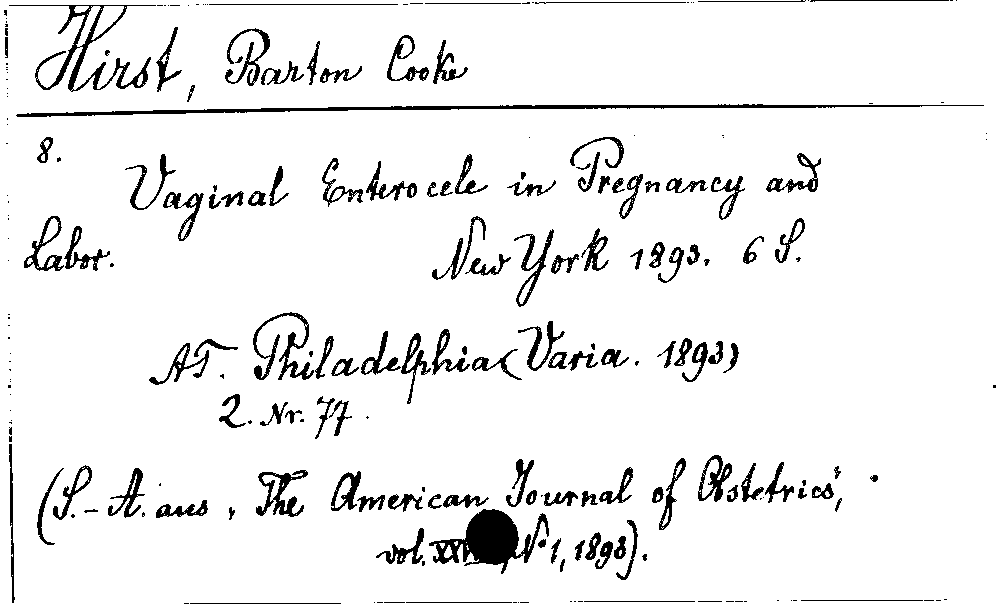 Hirst, Barton Cooke
8.
Vaginal Enterocele in Pregnancy and
Labor. New York 1893. 6 S.
AT. Philadelphia (Varia. 1893)
2. Nr. 77.
(S.-A. aus „The American Journal of Obstetrics",
vol. No 1, 1893).